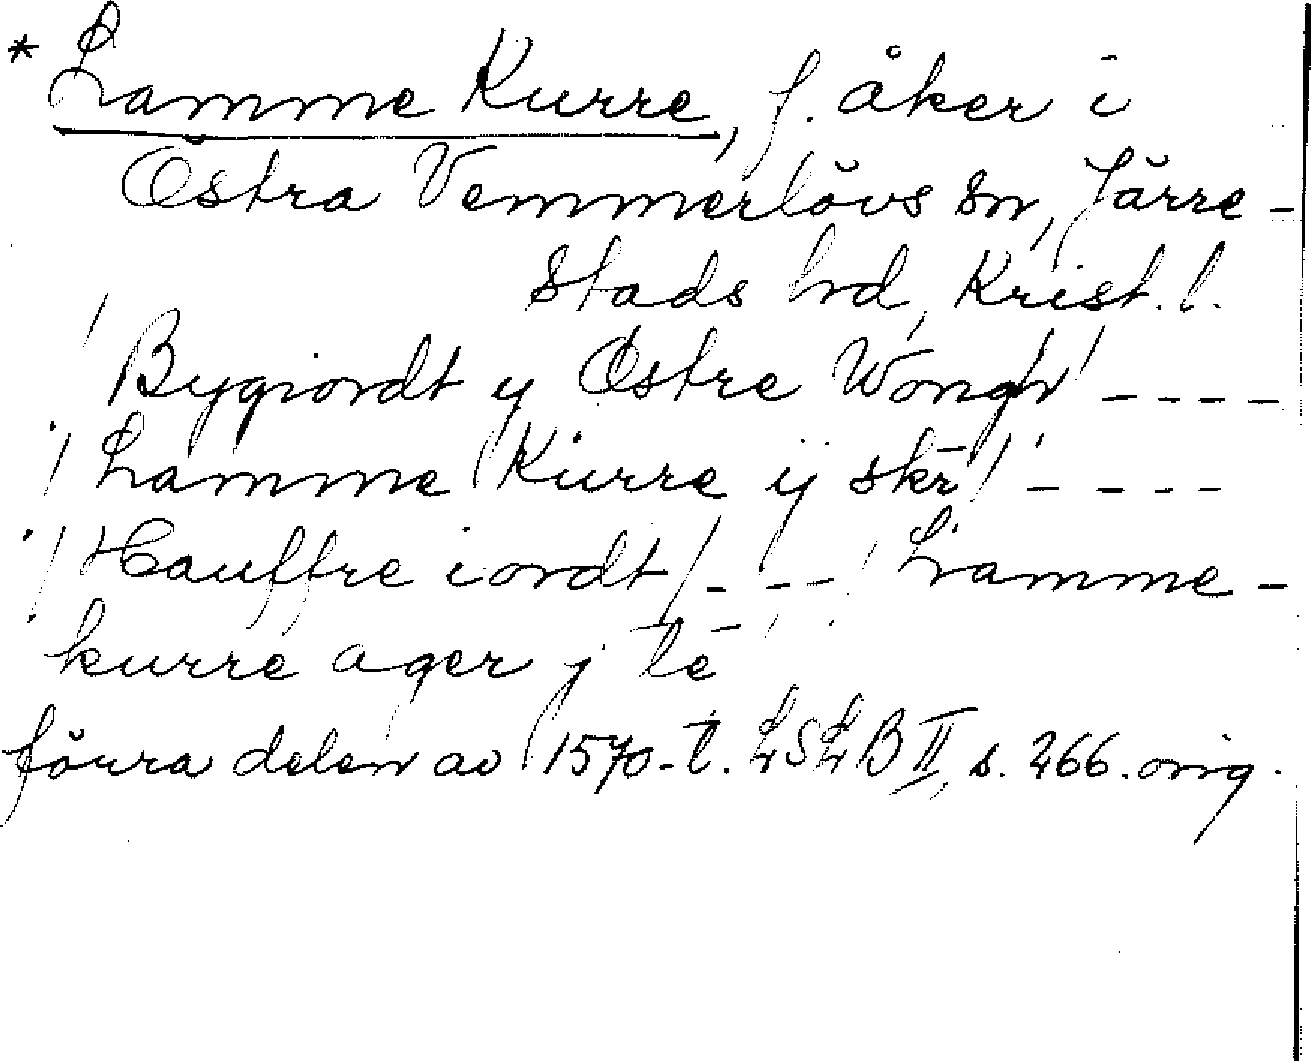 * Lamme Kurre, f. åker i
Östra Vemmerlövs sn, Järre-
stads hd, Krist. l.
/ Bygiordt y Østre Wongh / ----
·/ Lamme Kurre ÿ skr̄ / ----
·/ Hauffre iordt / --- / Lamme-
kurre ager j te
förra delen av 1570-t. LSLB II, s. 266. orig.